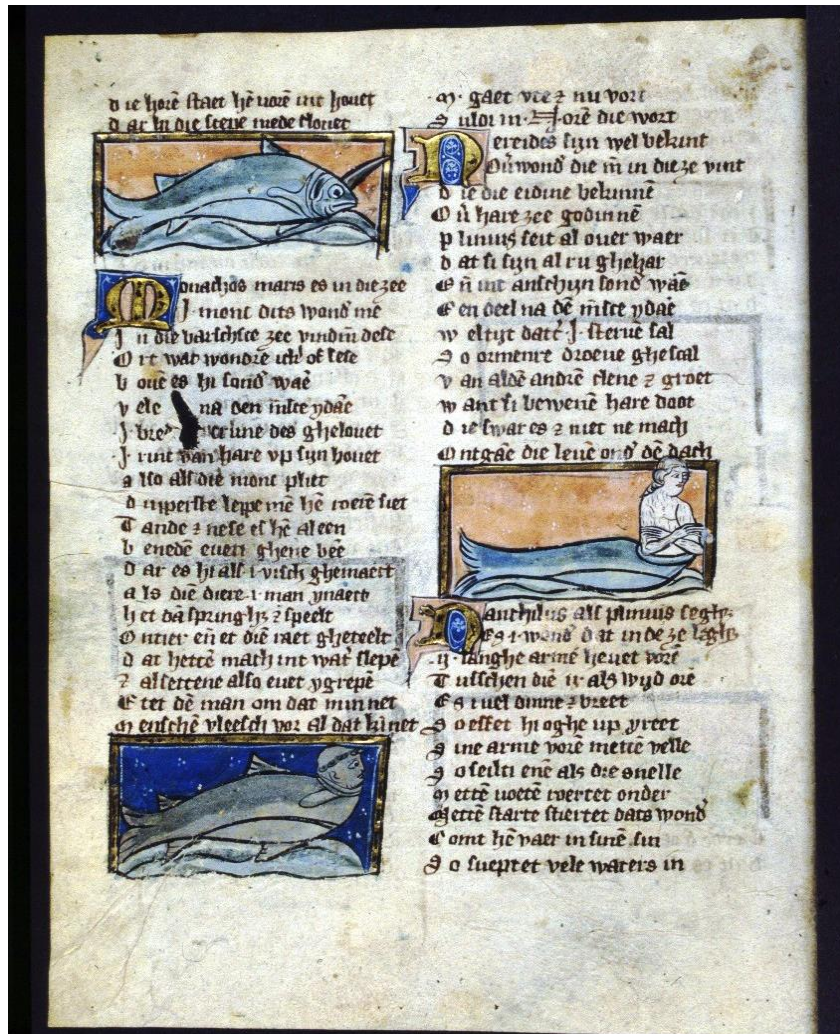 d ie horē staet hē uorē int houet
d ar hi die scepe mede clouet
Monachos maris es in die zee
J· monc dits wond' mē
J n die varschsce zee vindm dese
O rt wat wondre ick' of lese
b ouē es hi sond' waē
v ele na den m̄sce ydaē
J· bre crune des ghelouet
J· rinc van hare vp sijn houet
a lso als die monc pliet
d upperste leppe mē hē roerē siet
T ande ⁊ nese es hē al een
b enedē euen ghene beē
d ar es hi als ·i· visch ghemaect
a ls diē diere ·i· man ynaect
h et dā springhꝫ ⁊ speelt
O ntier eñ et diē raet gheteelt
d at hettē mach int wat' slepē
⁊ alsettene also euet ygrepē
E tet dē man om dat minnet
M enschē vleesch vor al dat kīnet
M· gaet vte ⁊ nu vort
S uloi in· N· orē die wort
Nereides sijn wel bekint
Ou wond' die m̄ in die ze vint
d ie die eidine bekinnē
O ū hare zee godinnē
p linius seit al ouer waer
d at si sijn al ru ghehar
E n̄ int anschijn sond' waē
E en deel na dē m̄sce ydaē
w eltijt datt' ·J· sterue sal
S o oemenre droeue ghescal
v an aldē andrē clene ⁊ groet
w ant si bewenē hare doot
d ie swar es ⁊ niet ne mach
O ntgāe die leuē ond' dē dach
Nanthilus als plinius seghꝫ
Es ·i· wond' dat in de ze leghꝫ
·ij· langhe armē heuet vorē
T usschen diē ij als wijd orē
E s ·i· uel dinne ⁊ breet
S o effet hi oghe up yreet
S ine arme vorē mettē velle
S o seilti enē als dre snelle
M ettē uoetē roertet onder
Mettē starte stiertet dats wond'
C omt hē vaer in sinē sin
S o sueptet vele waters in